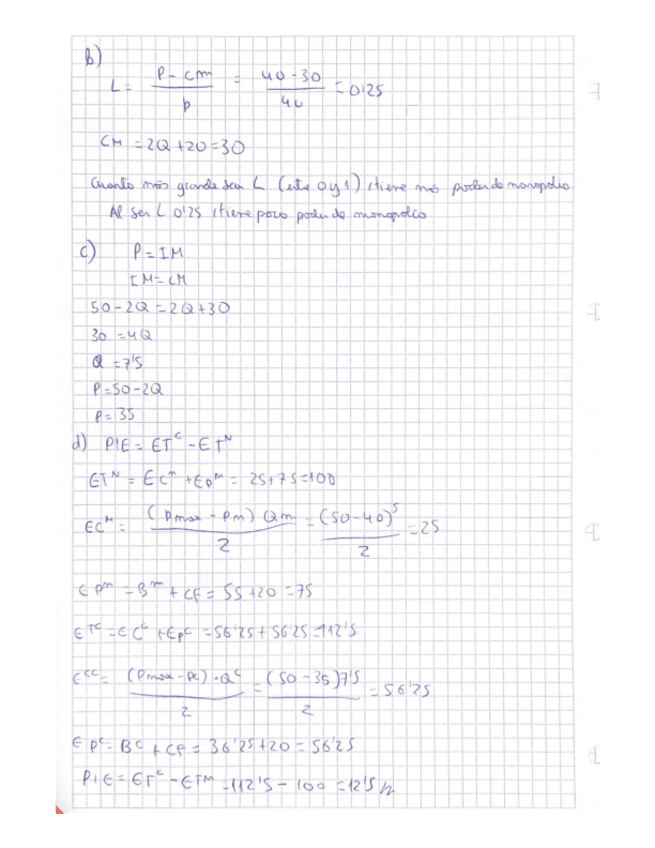 b)
L = P - cm / p = 40 - 30 / 40 = 0'25
CM = 2Q + 20 = 30
Cuanto más grande sea L (entre 0 y 1) tiene más poder de monopolio.
Al ser L 0'25 tiene poco poder de monopolio
c) P = IM
IM = CM
50 - 2Q = 2Q + 30
30 = 4Q
Q = 7'5
P = 50 - 2Q
P = 35
d) PIE = ET^C - ET^M
ET^M = EC^m + EP^M = 25 + 75 = 100
EC^M = (Pmax - Pm) Qm / 2 = (50 - 40) 5 / 2 = 25
EP^m = B^m + CF = 55 + 20 = 75
ET^C = EC^C + EP^C = 56'25 + 56'25 = 112'5
E^CC = (Pmax - Pc) · Q^C / 2 = (50 - 35) 7'5 / 2 = 56'25
EP^C = B^C + CF = 36'25 + 20 = 56'25
PIE = ET^C - ET^M = 112'5 - 100 = 12'5